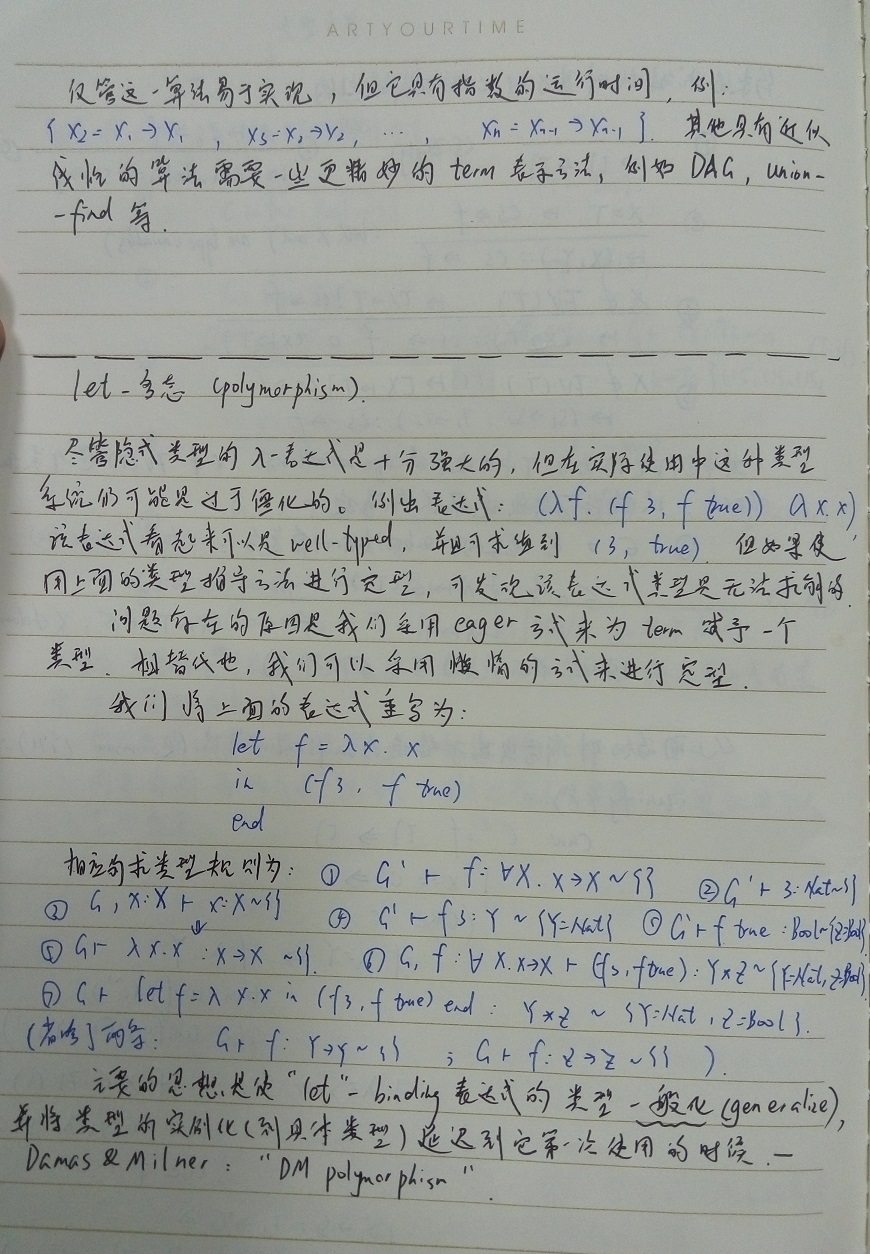 ARTYOURTIME
仅管这一算法易于实现，但它具有指数的运行时间，例：
{ X₂ = X₁ → X₁ , X₃ = X₂ → X₂, ⋯ , Xn = Xn-1 → Xn-1 }. 其他具有近似
线性的算法需要一些更精妙的 term 表示方法，例如 DAG, union-
-find 等.
let-多态 (polymorphism).
尽管隐式类型的 λ-表达式是十分强大的，但在实际使用中这种类型
系统仍可能是过于僵化的。例出表达式： (λf. (f 3, f true)) (λx.x)
该表达式看起来可以是 well-typed, 并且可求值到 (3, true). 但如果使
用上面的类型推导方法进行定型，可发现该表达式类型是无法求解的.
问题存在的原因是我们采用 eager 方式来为 term 赋予一个
类型. 相替代地，我们可以采用懒惰的方式来进行定型.
我们将上面的表达式重写为：
let f = λx. x
in (f 3, f true)
end
相应的求类型规则为： ① G' ⊢ f: ∀X. X→X ~ {} ② G' ⊢ 3: Nat ~ {}
③ G, x: X ⊢ x: X ~ {} ④ G' ⊢ f 3: Y ~ {Y=Nat} G' ⊢ f true : Bool ~ {Z=Bool}
⇓
⑤ G ⊢ λx.x : X→X ~ {}. ⑥ G, f: ∀X. X→X ⊢ (f 3, f true) : Y×Z ~ {Y=Nat, Z=Bool}
⑦ G ⊢ let f = λx.x in (f 3, f true) end : Y×Z ~ {Y=Nat, Z=Bool}.
(省略了两条: G ⊢ f: Y→Y ~ {} ; G ⊢ f: Z→Z ~ {} ).
主要的思想是使 "let"-binding 表达式的类型一般化 (generalize),
并将类型的实例化(到具体类型)延迟到它第一次使用的时候. —
Damas & Milner : "DM polymorphism".